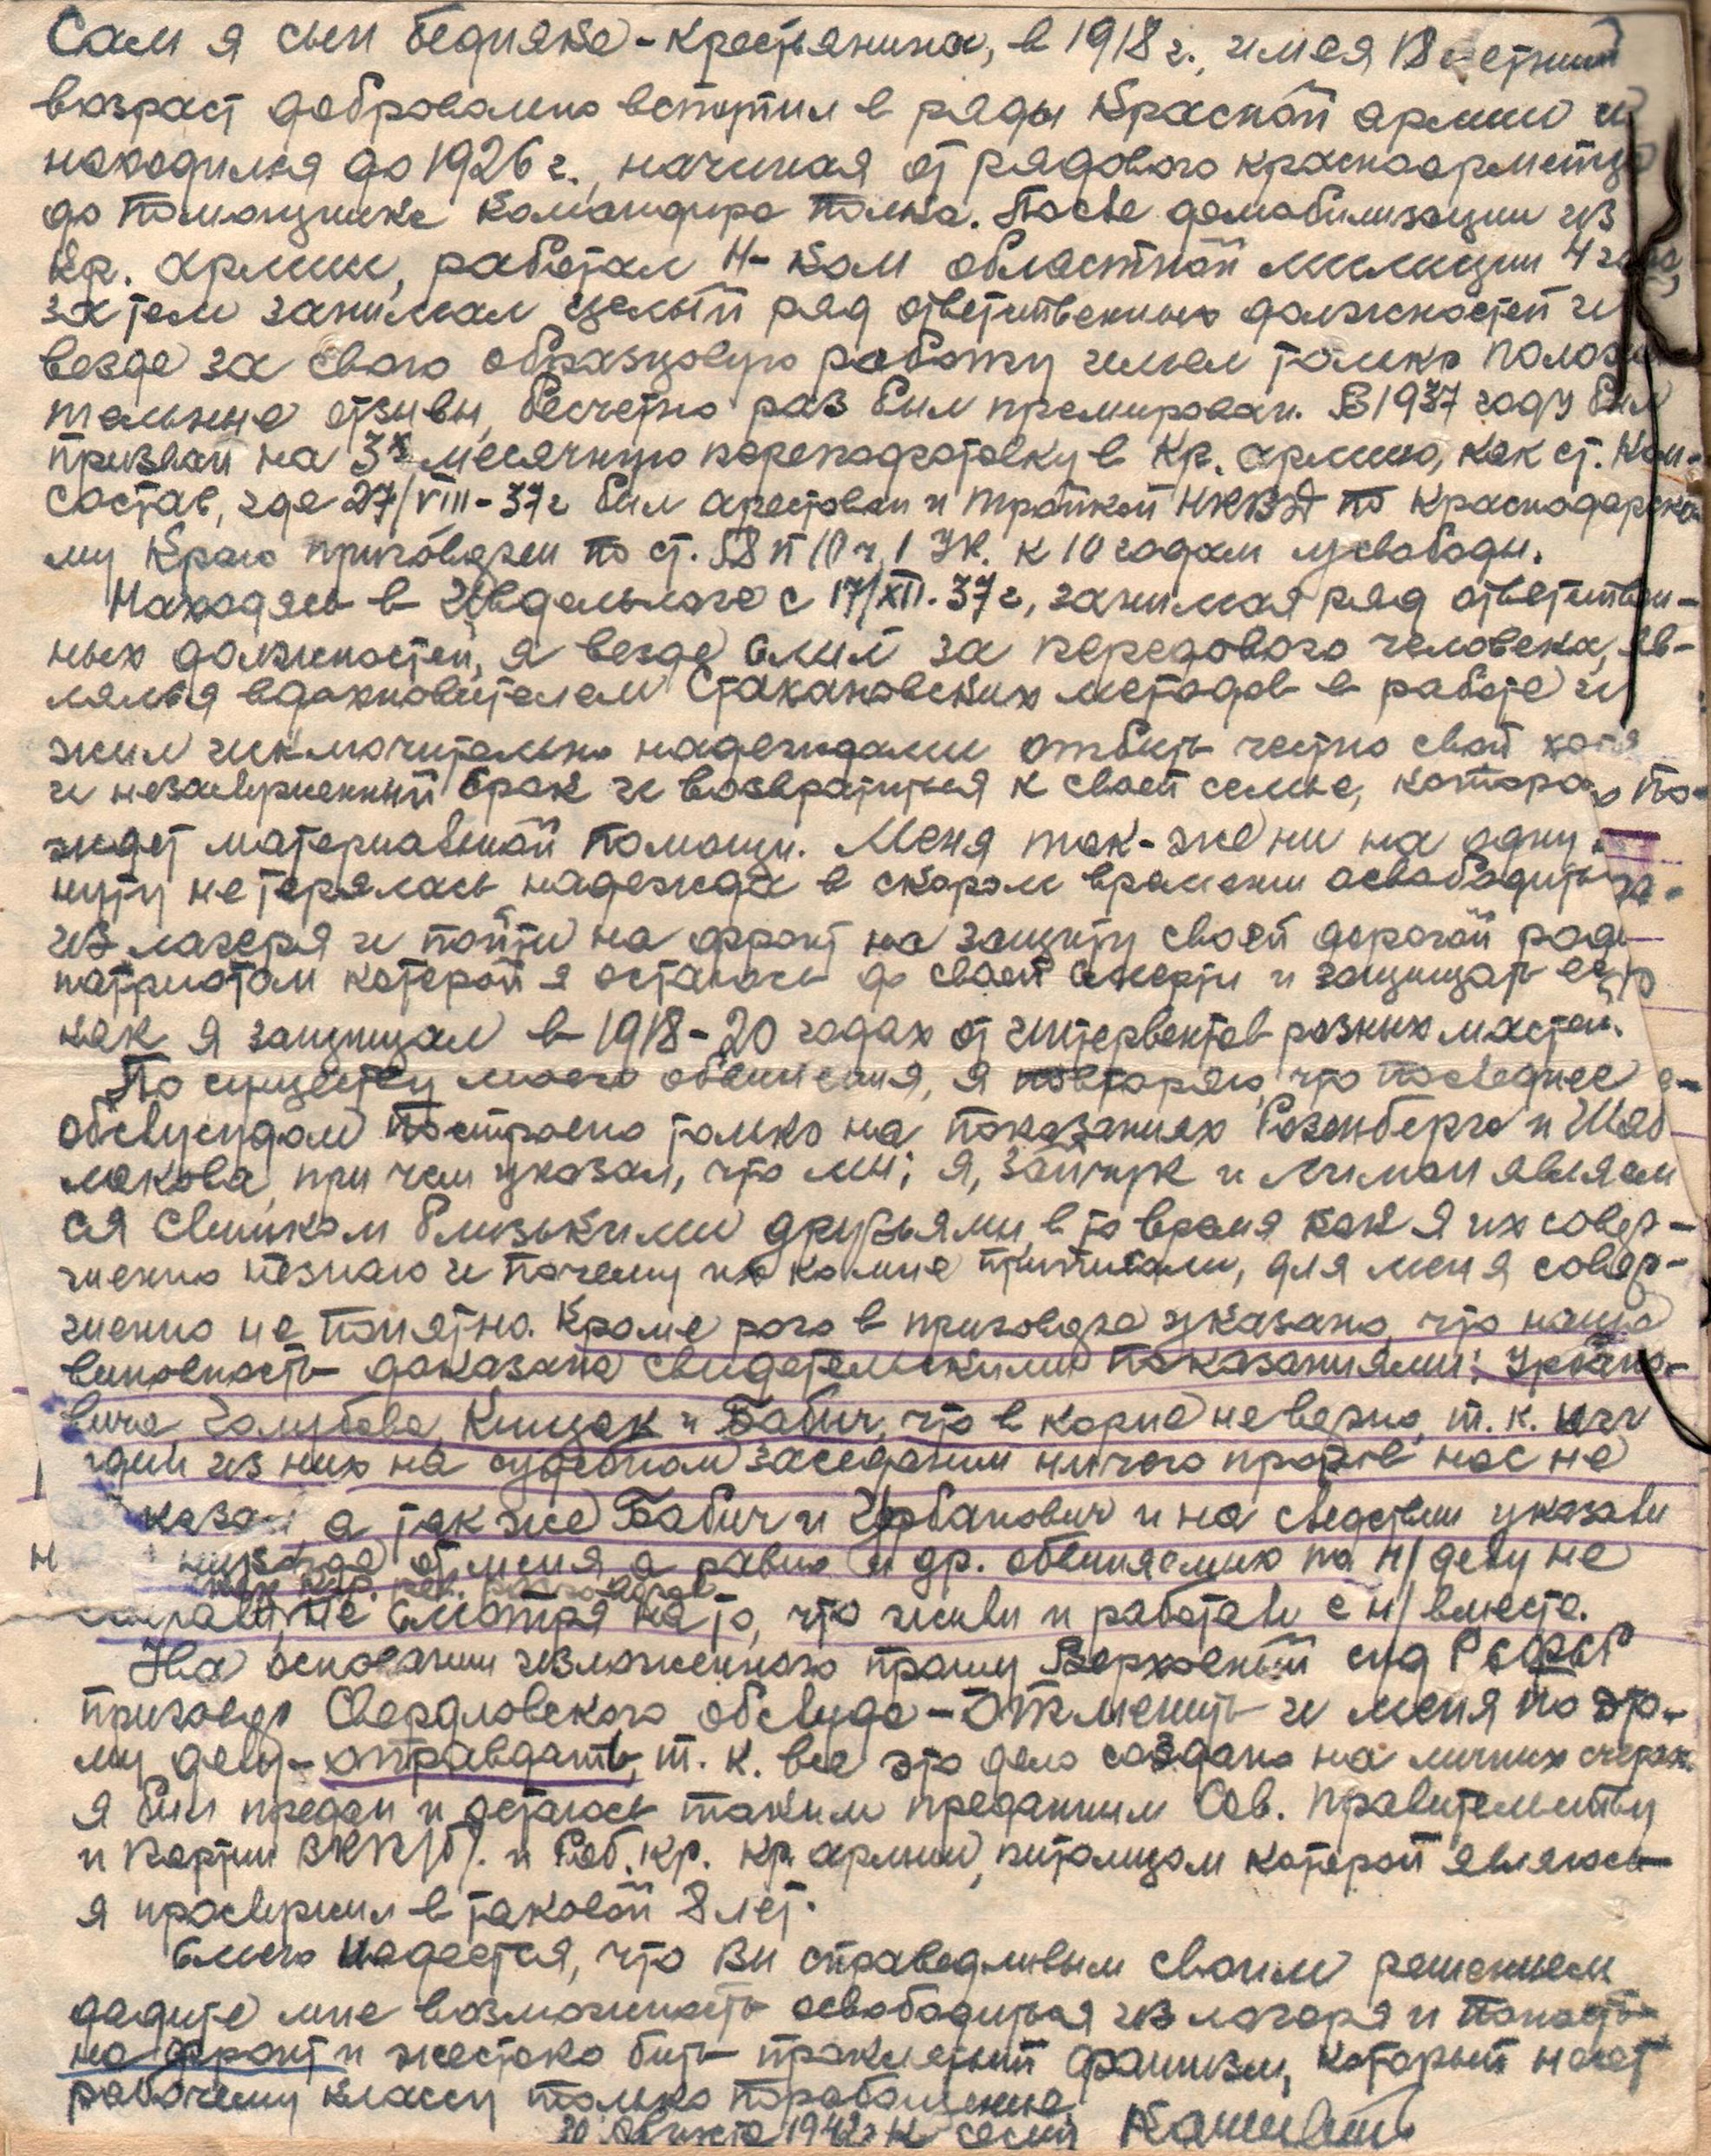 Сам я сын бедняка-крестьянина, в 1918 г., имея 18 летний
возраст добровольно вступил в ряды Красной армии и
находился до 1926 г., начиная от рядового красноармейца
до помощника командира полка. После демобилизации из
Кр. армии, работал Н-ком областной милиции 4 года,
затем занимал целый ряд ответственных должностей и
везде за свою образцовую работу имел только положи
тельные отзывы, бесчетно раз был премирован. В 1937 году был
призван на 3х месячную переподготовку в Кр. армию, как ст. Ком-
состав, где 27/VIII-37г был арестован и тройкой НКВД по Краснодарско
му Краю приговорен по ст. 58 п 10 ч. 1 УК. к 10 годам л/свободы.
Находясь в Ивдельлаге с 17/XII.37г, занимая ряд ответствен-
ных должностей, я везде слыл за передового человека, яв-
лялся вдохновителем Стахановских методов в работе и
жил исключительно надеждами отбыть честно свой хотя
и незавершенный срок и возвратиться к своей семье, которая
ждет материальной помощи. Меня так-же ни на одну
нуту не терялась надежда в скором времени освободиться
из лагеря и пойти на фронт на защиту своей дорогой роди
патриотом которой я остаюсь до своей смерти и защищать ее
как я защищал в 1918-20 годах от интервентов разных мастей.
По существу моего обвинения, я повторяю, что последнее
облсудом построено только на показаниях Розенберга и
макова, при чем указал, что мы; я, Зайчук и Лиман являем
ся слишком близькими друзьями, в то время как я их совер-
шенно незнаю и почему их комне притисали, для меня совер-
шенно не понятно. Кроме того в приговоре указано, что наша
виновность доказана свидетельскими показаниями; Урбано-
вича Голубова, Кищак и Бабич, что в корне не верно, т. к.
один из них на судебном заседании ничего против нас не
казал, а так же Бабич и Урбанович и на следствии указали
от меня а равно и др. обвиняемых по н/делу не
не смотря на то, что жили и работали с н/вместе.
На основании изложенного прошу Верховный суд РСФСР
приговор Свердловского облсуда - Отменить и меня по это-
му делу - оправдать, т. к. все это дело создано на личных счетах.
я был предан и остаюсь таким преданным Сов. правительству
и партии ВКП/б/. и Раб. Кр. Кр. армии, питомцом которой являюсь
я прослужил в таковой 8 лет.
Смею надеется, что Вы справедливым своим решением
дадите мне возможность освободиться из лагеря и попасть
на фронт и жестоко бить проклятый фашизм, который несет
рабочему классу только порабощение.
20 Августа 1942г К сему